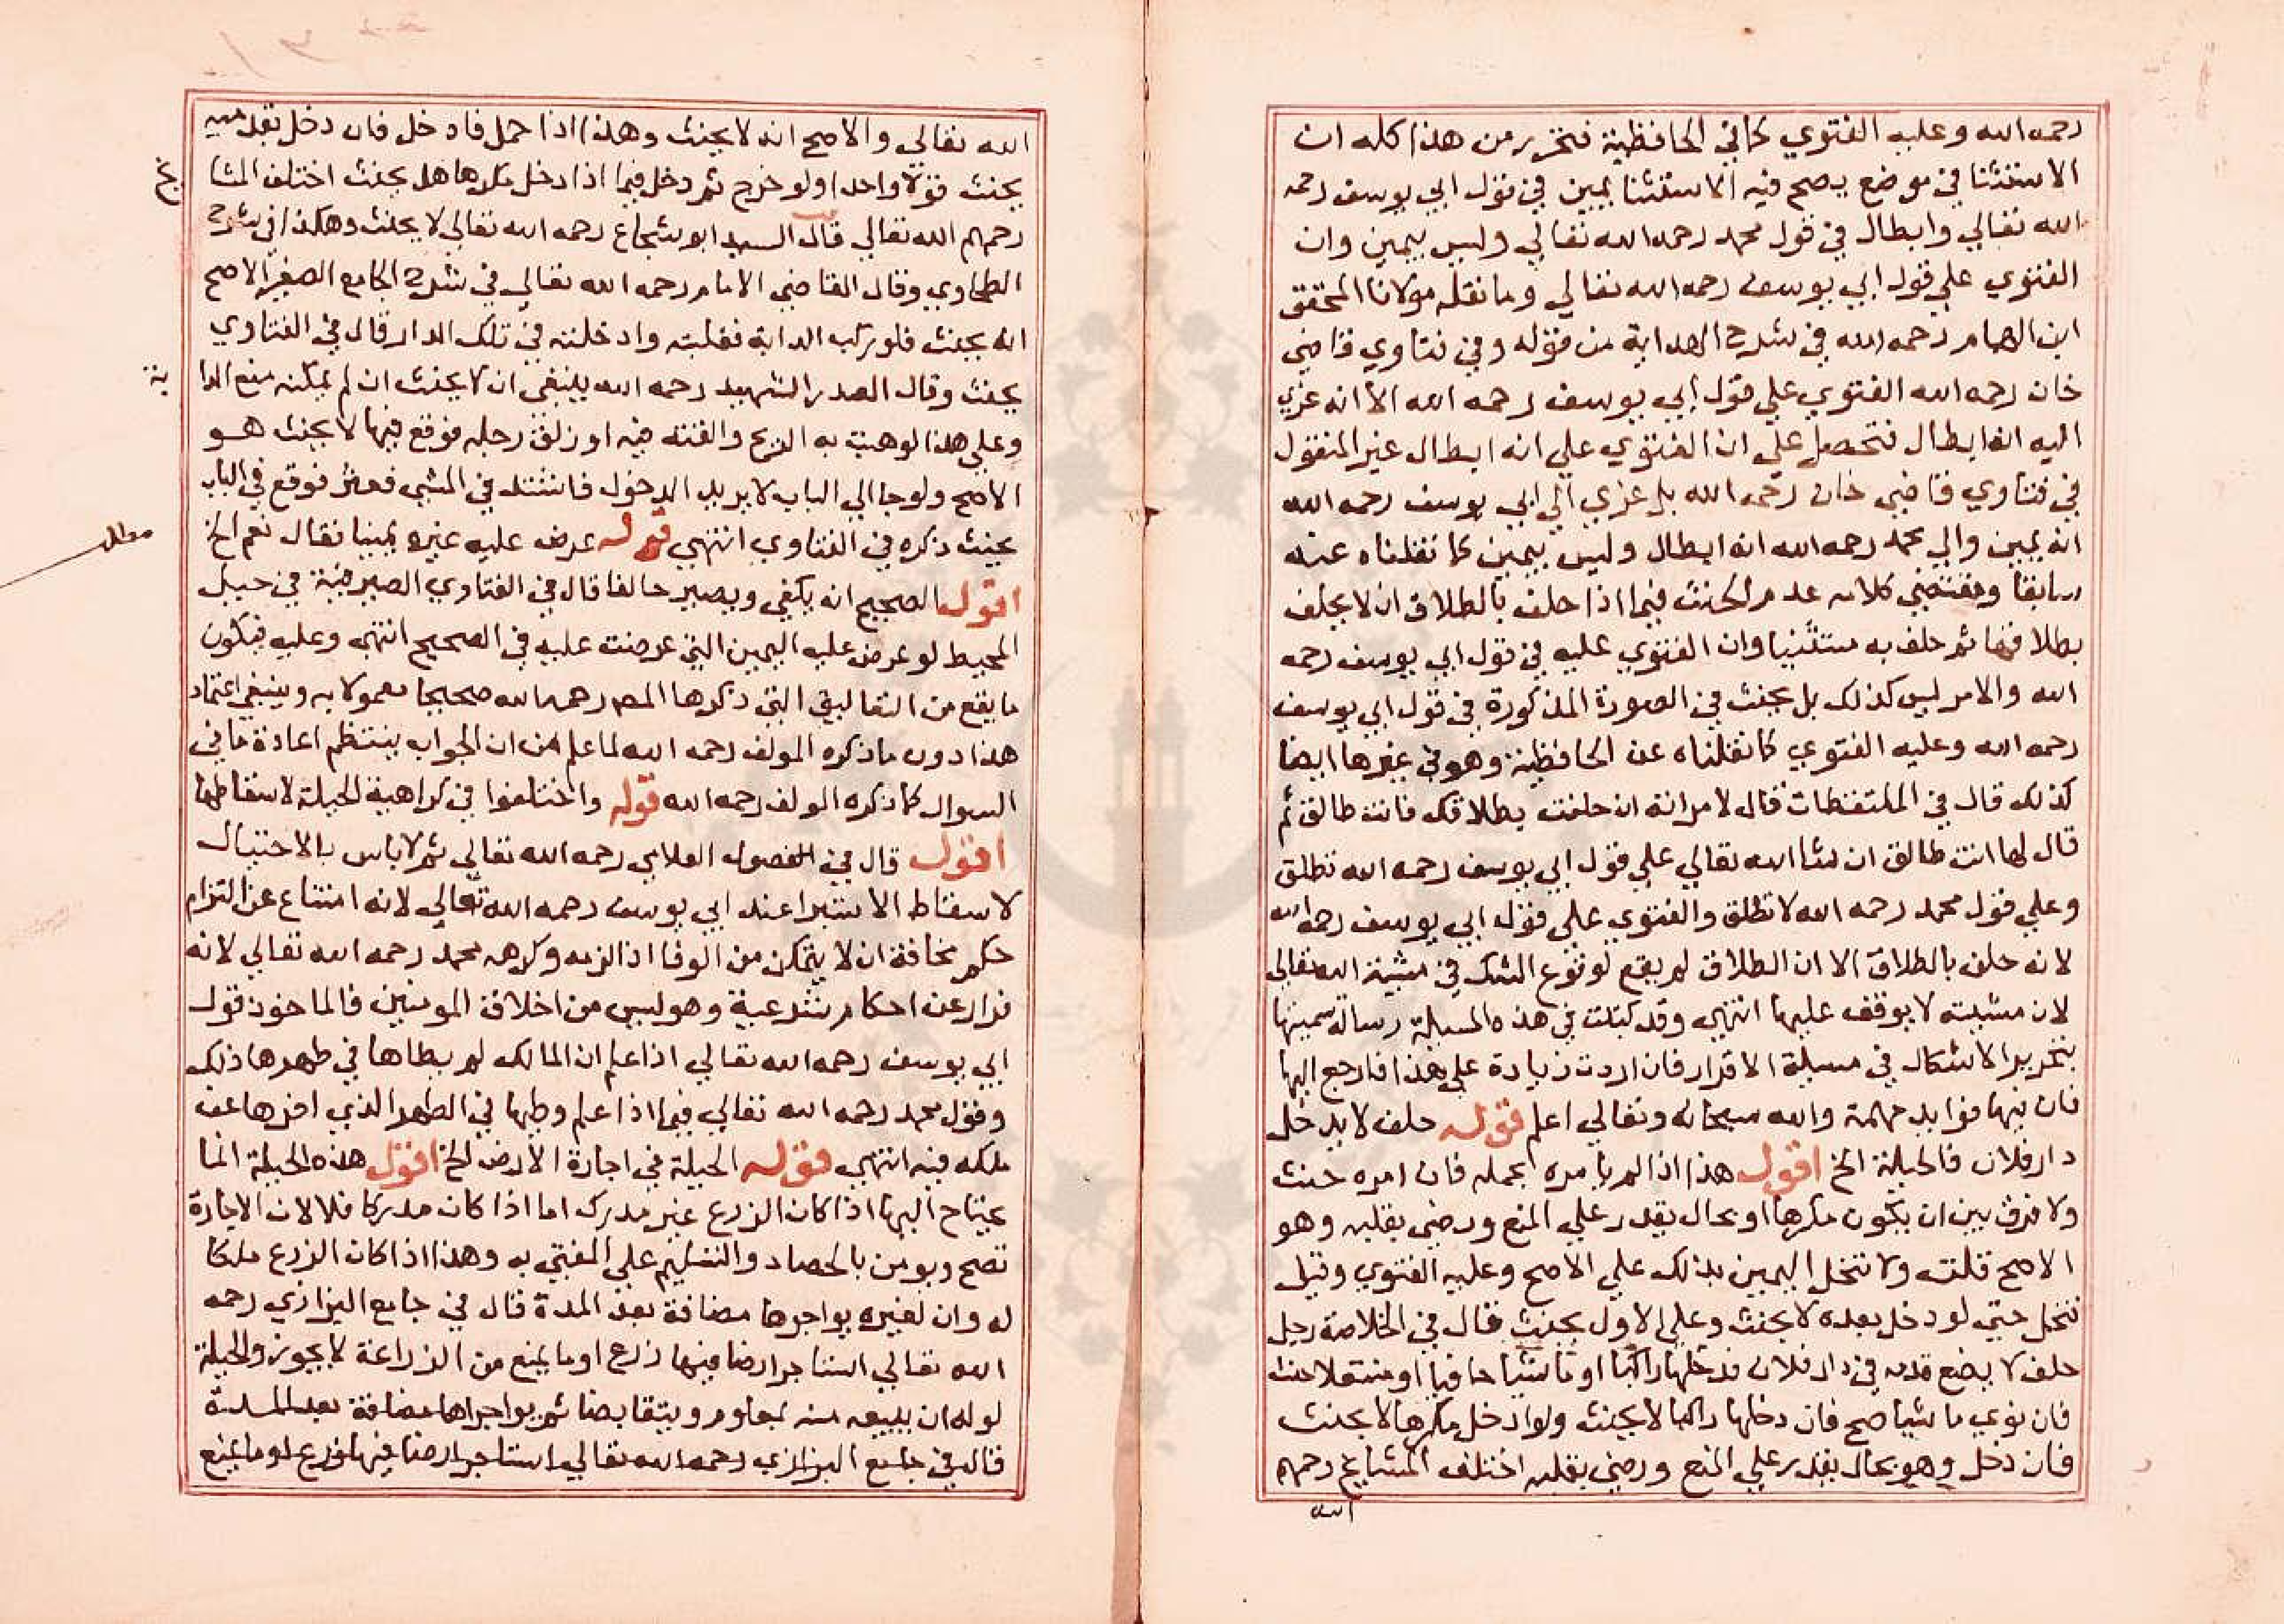 رحمه الله وعليه الفتوي كما في الحافظية فتحرر من هذا كله ان
الاستثنا في موضع يصح فيه الاستثنا يمين في قول ابي يوسف رحمه
الله تعالي وابطال في قول محمد رحمه الله تعالي وليس بيمين وان
الفتوي علي قول ابي يوسف رحمه الله تعالي وما نقله مولانا المحقق
ابن الهمام رحمه الله في شرح الهداية من قوله وفي فتاوي قاضي
خان رحمه الله الفتوي علي قول ابي يوسف رحمه الله الا انه عزي
اليه انه ابطال فتحصل علي ان الفتوي علي انه ابطال غير المنقول
في فتاوي قاضي خان رحمه الله بل عزي الي ابي يوسف رحمه الله
انه يمين والي محمد رحمه الله انه ابطال وليس بيمين كما نقلناه عنه
سابقا ومقتضي كلامه عدم الحنث فيما اذا حلف بالطلاق ان لا يحلف
بطلاقها ثم حلف به مستثنيا وان الفتوي عليه في قول ابي يوسف رحمه
الله والامر ليس كذلك بل يحنث في الصورة المذكورة في قول ابي يوسف
رحمه الله وعليه الفتوي كما نقلناه عن الحافظية وهو في غيرها ايضا
كذلك قال في الملتقطات قال لامراته ان حلفت بطلاقك فانت طالق ثم
قال لها انت طالق ان شا الله تعالي علي قول ابي يوسف رحمه الله تطلق
وعلي قول محمد رحمه الله لا تطلق والفتوي علي قول ابي يوسف رحمه الله
لانه حلف بالطلاق الا ان الطلاق لم يقع لوقوع الشك في مشية الله تعالي
لان مشيته لا يوقف عليها انتهي وقد كتبت في هذه المسيلة رسالة سميتها
بتحرير الاشكال في مسيلة الاقرار فان اردت زيادة علي هذا فارجع اليها
فان فيها فوايد مهمة والله سبحانه وتعالي اعلم قوله حلف لا يدخل
دار فلان فالحيلة الخ اقول هذا اذا لم يامره بحمله فان امره حنث
ولا فرق بين ان يكون مكرها او بحال يقدر علي المنع ورضي بقلبه وهو
الاصح قلت ولا تنحل اليمين بذلك علي الاصح وعليه الفتوي وقيل
تنحل حتي لو دخل بعده لا يحنث وعلي الاول يحنث قال في الخلاصة رجل
حلف لا يضع قدمه في دار فلان فدخلها راكبا او ماشيا حافيا او منتعلا حنث
فان نوي ماشيا صح فان دخلها راكبا لا يحنث ولو ادخل مكرها لا يحنث
فان دخل وهو بحال يقدر علي المنع ورضي بقلبه اختلف المشايخ رحمهم
الله
الله تعالي والاصح انه لا يحنث وهذا اذا حمل فادخل فان دخل بقدميه
يحنث قولا واحدا ولو خرج ثم دخل فيما اذا دخل مكرها هل يحنث اختلف المشا
يخ
رحمهم الله تعالي قال السيد ابو شجاع رحمه الله تعالي لا يحنث وهكذا في شرح
الطحاوي وقال القاضي الامام رحمه الله تعالي في شرح الجامع الصغير الاصح
انه يحنث فلو ركب الدابة ففلتت وادخلته في تلك الدار قال في الفتاوي
يحنث وقال الصدر الشهيد رحمه الله ينبغي ان لا يحنث ان لم يمكنه منع الدا
بة
وعلي هذا لو هبت به الريح والقته فيه او زلق رجله فوقع فيها لا يحنث هو
الاصح ولو جا الي الباب لا يريد الدخول فاشتد في المشي فعثر فوقع في الباب
يحنث ذكره في الفتاوي انتهي قوله عرض عليه غيره يمينا فقال نعم الخ
مطلب
اقول الصحيح انه يكفي ويصير حالفا قال في الفتاوي الصيرفية في حيل
المحيط لو عرض عليه اليمين التي عرضت عليه في الصحيح انتهي وعليه فيكون
ما يقع من التعاليق التي ذكرها المص رحمه الله صحيحا معمولا به وينبغي اعتماد
هذا دون ما ذكره المولف رحمه الله لما علم من ان الجواب ينتظم اعادة ما في
السوال كما ذكره المولف رحمه الله قوله واختلفوا في كراهية الحيلة لاسقاطها
اقول قال في الفصول العلاي رحمه الله تعالي ثم لا باس بالاحتيال
لاسقاط الاستبرا عند ابي يوسف رحمه الله تعالي لانه امتناع عن التزام
حكم مخافة ان لا يتمكن من الوفا اذا لزمه وكرهه محمد رحمه الله تعالي لانه
فرار عن احكام شرعية وهو ليس من اخلاق المومنين فالماخوذ قول
ابي يوسف رحمه الله تعالي اذا علم ان المالك لم يطاها في طهرها ذلك
وقول محمد رحمه الله تعالي فيما اذا علم وطيها في الطهر الذي اخرها عن
ملكه فيه انتهي قوله الحيلة في اجارة الارض الخ اقول هذه الحيلة انما
يحتاج اليها اذا كان الزرع غير مدرك اما اذا كان مدركا فلا لان الاجارة
تصح ويومر بالحصاد والتسليم علي المفتي به وهذا اذا كان الزرع ملكا
له وان لغيره يواجرها مضافة بعد المدة قال في جامع البزازي رحمه
الله تعالي استاجر ارضا فيها زرع او ما يمنع من الزراعة لا يجوز والحيلة
لو له ان يبيعه منه بمعلوم ويتقابضا ثم يواجراها مضافة بعد المدة
قال في جامع البزازي رحمه الله تعالي استاجر ارضا فيها زرع او ما يمنع